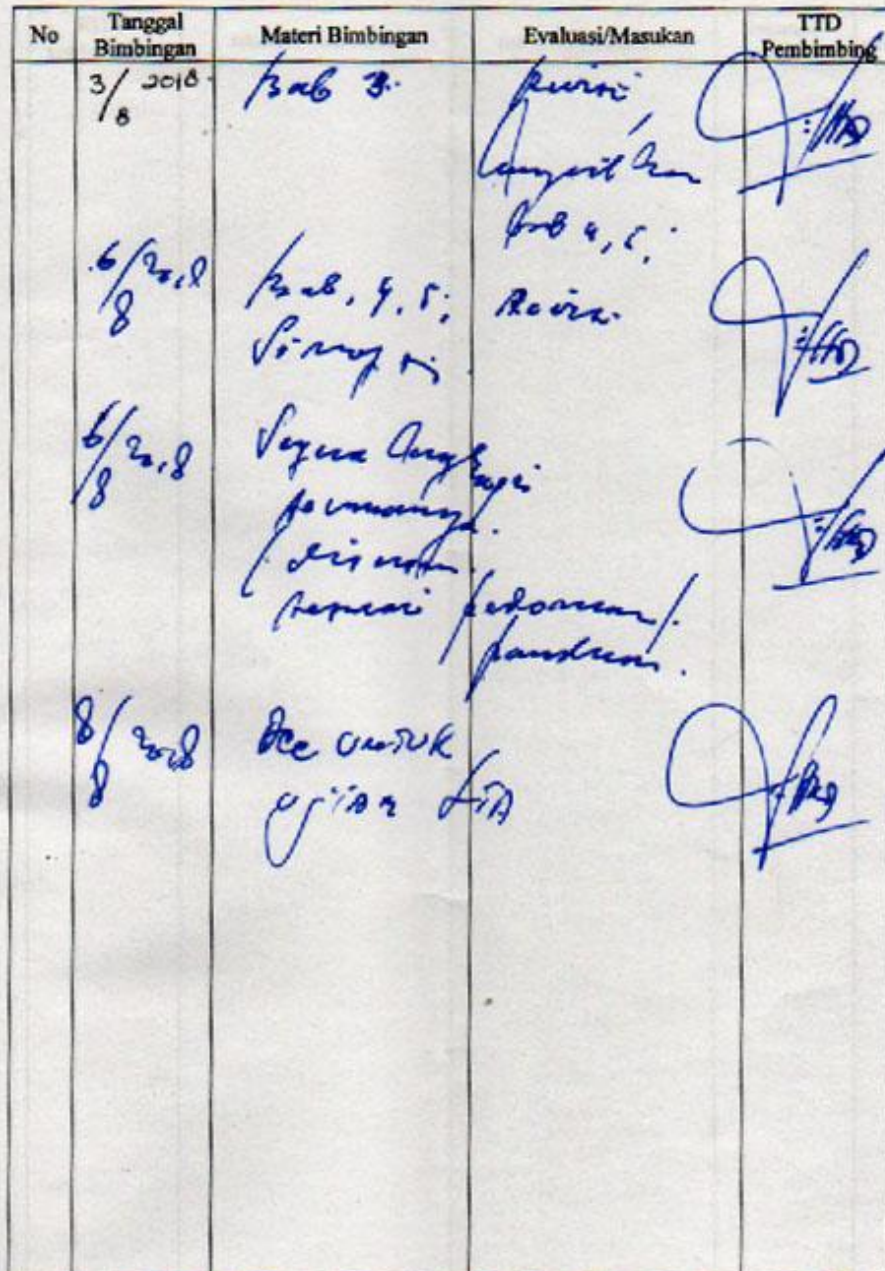 No Tanggal Bimbingan Materi Bimbingan Evaluasi/Masukan TTD Pembimbing
3/8 2018 Bab 3. Revisi
Lanjutkan
bab 4, 5;
6/8 2018 Bab, 4, 5; Revisi
Sinopsis
6/8 2018 Segera lengkapi
disusun
sesuai pedoman/
panduan.
8/8 2018 Acc untuk
ujian